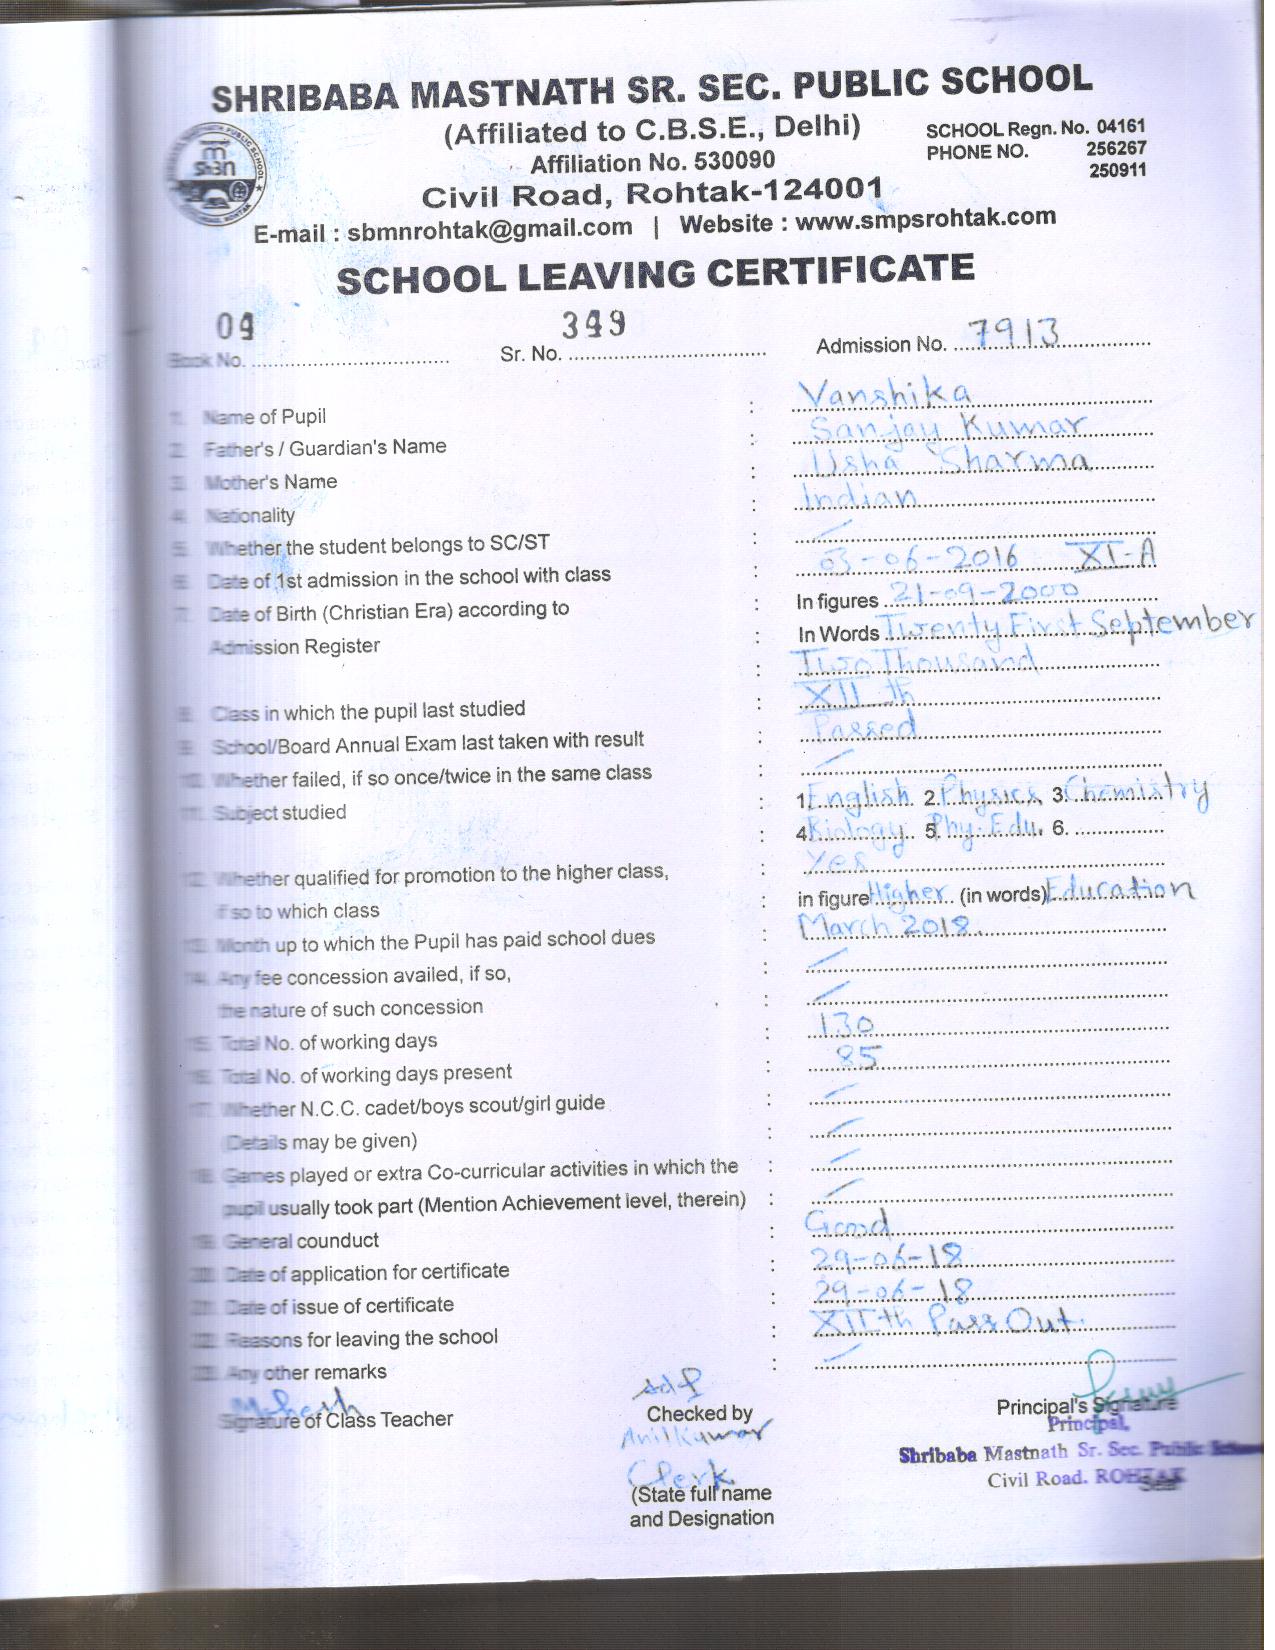 SHRIBABA MASTNATH SR. SEC. PUBLIC SCHOOL
(Affiliated to C.B.S.E., Delhi)
SCHOOL Regn. No. 04161
Affiliation No. 530090
PHONE NO. 256267
250911
Civil Road, Rohtak-124001
E-mail : sbmnrohtak@gmail.com | Website : www.smpsrohtak.com
SCHOOL LEAVING CERTIFICATE
Book No. 04 Sr. No. 349 Admission No. 7913
1. Name of Pupil : Vanshika
2. Father's / Guardian's Name : Sanjay Kumar
3. Mother's Name : Usha Sharma
4. Nationality : Indian
5. Whether the student belongs to SC/ST :
6. Date of 1st admission in the school with class : 03-06-2016 XI-A
7. Date of Birth (Christian Era) according to : In figures 21-09-2000
Admission Register : In Words Twenty First September
: Two Thousand
8. Class in which the pupil last studied : XII th
9. School/Board Annual Exam last taken with result : Passed
10. Whether failed, if so once/twice in the same class :
11. Subject studied : 1. English 2. Physics 3. Chemistry
: 4. Biology 5. Phy. Edu. 6.
12. Whether qualified for promotion to the higher class, : Yes
if so to which class : in figure Higher (in words) Education
13. Month up to which the Pupil has paid school dues : March 2018.
14. Any fee concession availed, if so, :
the nature of such concession :
15. Total No. of working days : 130
16. Total No. of working days present : 85
17. Whether N.C.C. cadet/boys scout/girl guide :
(Details may be given) :
18. Games played or extra Co-curricular activities in which the :
pupil usually took part (Mention Achievement level, therein) :
19. General counduct : Good
20. Date of application for certificate : 29-06-18
21. Date of issue of certificate : 29-06-18
22. Reasons for leaving the school : XIIth Pass Out.
23. Any other remarks :
Mahesh
Signature of Class Teacher
Checked by
Anil Kumar
Clerk
(State full name
and Designation
Principal's Signature
Principal,
Shribaba Mastnath Sr. Sec. Public School
Civil Road. ROHTAK
Seal